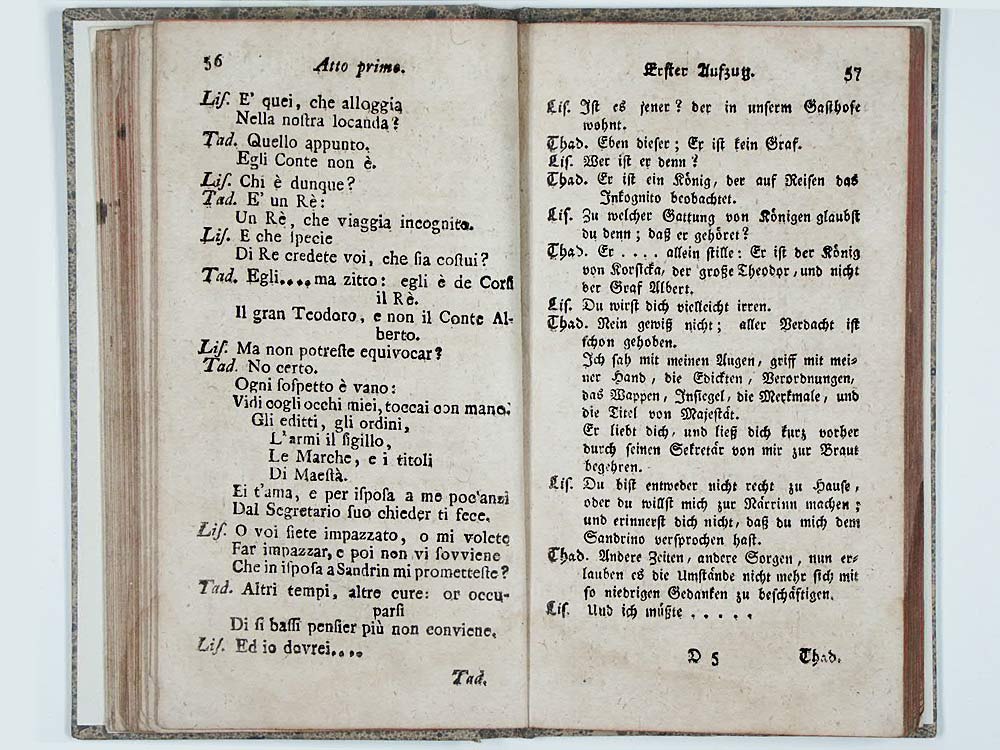 56 Atto primo.
Lis. E' quei, che alloggia
Nella nostra locanda?
Tad. Quello appunto.
Egli Conte non è.
Lis. Chi è dunque?
Tad. E' un Rè:
Un Rè, che viaggia incognito.
Lis. E che specie
Di Re credete voi, che sia costui?
Tad. Egli.... ma zitto: egli è de Corsi
il Rè.
Il gran Teodoro, e non il Conte Al-
berto.
Lis. Ma non potreste equivocar?
Tad. No certo.
Ogni sospetto è vano:
Vidi cogli occhi miei, toccai con mano.
Gli editti, gli ordini,
L'armi il sigillo,
Le Marche, e i titoli
Di Maestà.
Ei t'ama, e per isposa a me poc'anzi
Dal Segretario suo chieder ti fece.
Lis. O voi siete impazzato, o mi volete
Far impazzar, e poi non vi sovviene
Che in isposa a Sandrin mi promettéste?
Tad. Altri tempi, altre cure: or occu-
parsi
Di sì bassi pensier più non conviene.
Lis. Ed io dovrei....
Tad.
Erster Aufzug. 57
Lis. Ist es jener? der in unserm Gasthofe
wohnt.
Thad. Eben dieser; Er ist kein Graf.
Lis. Wer ist er denn?
Thad. Er ist ein König, der auf Reisen das
Inkognito beobachtet.
Lis. Zu welcher Gattung von Königen glaubst
du denn; daß er gehöret?
Thad. Er .... allein stille: Er ist der König
von Korsicka, der große Theodor, und nicht
der Graf Albert.
Lis. Du wirst dich vielleicht irren.
Thad. Nein gewiß nicht; aller Verdacht ist
schon gehoben.
Ich sah mit meinen Augen, griff mit mei-
ner Hand, die Edickten, Verordnungen,
das Wappen, Insiegel, die Merkmale, und
die Titel von Majestät.
Er liebt dich, und ließ dich kurz vorher
durch seinen Sekretär von mir zur Braut
begehren.
Lis. Du bist entweder nicht recht zu Hause,
oder du willst mich zur Närrinn machen;
und erinnerst dich nicht, daß du mich dem
Sandrino versprochen hast.
Thad. Andere Zeiten, andere Sorgen, nun er-
lauben es die Umstände nicht mehr sich mit
so niedrigen Gedanken zu beschäftigen.
Lis. Und ich müßte .....
D 5 Thad.